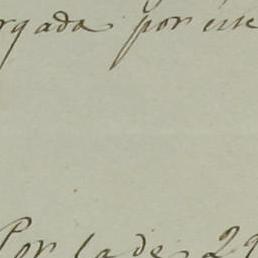 rgada por ese
Por la de 29